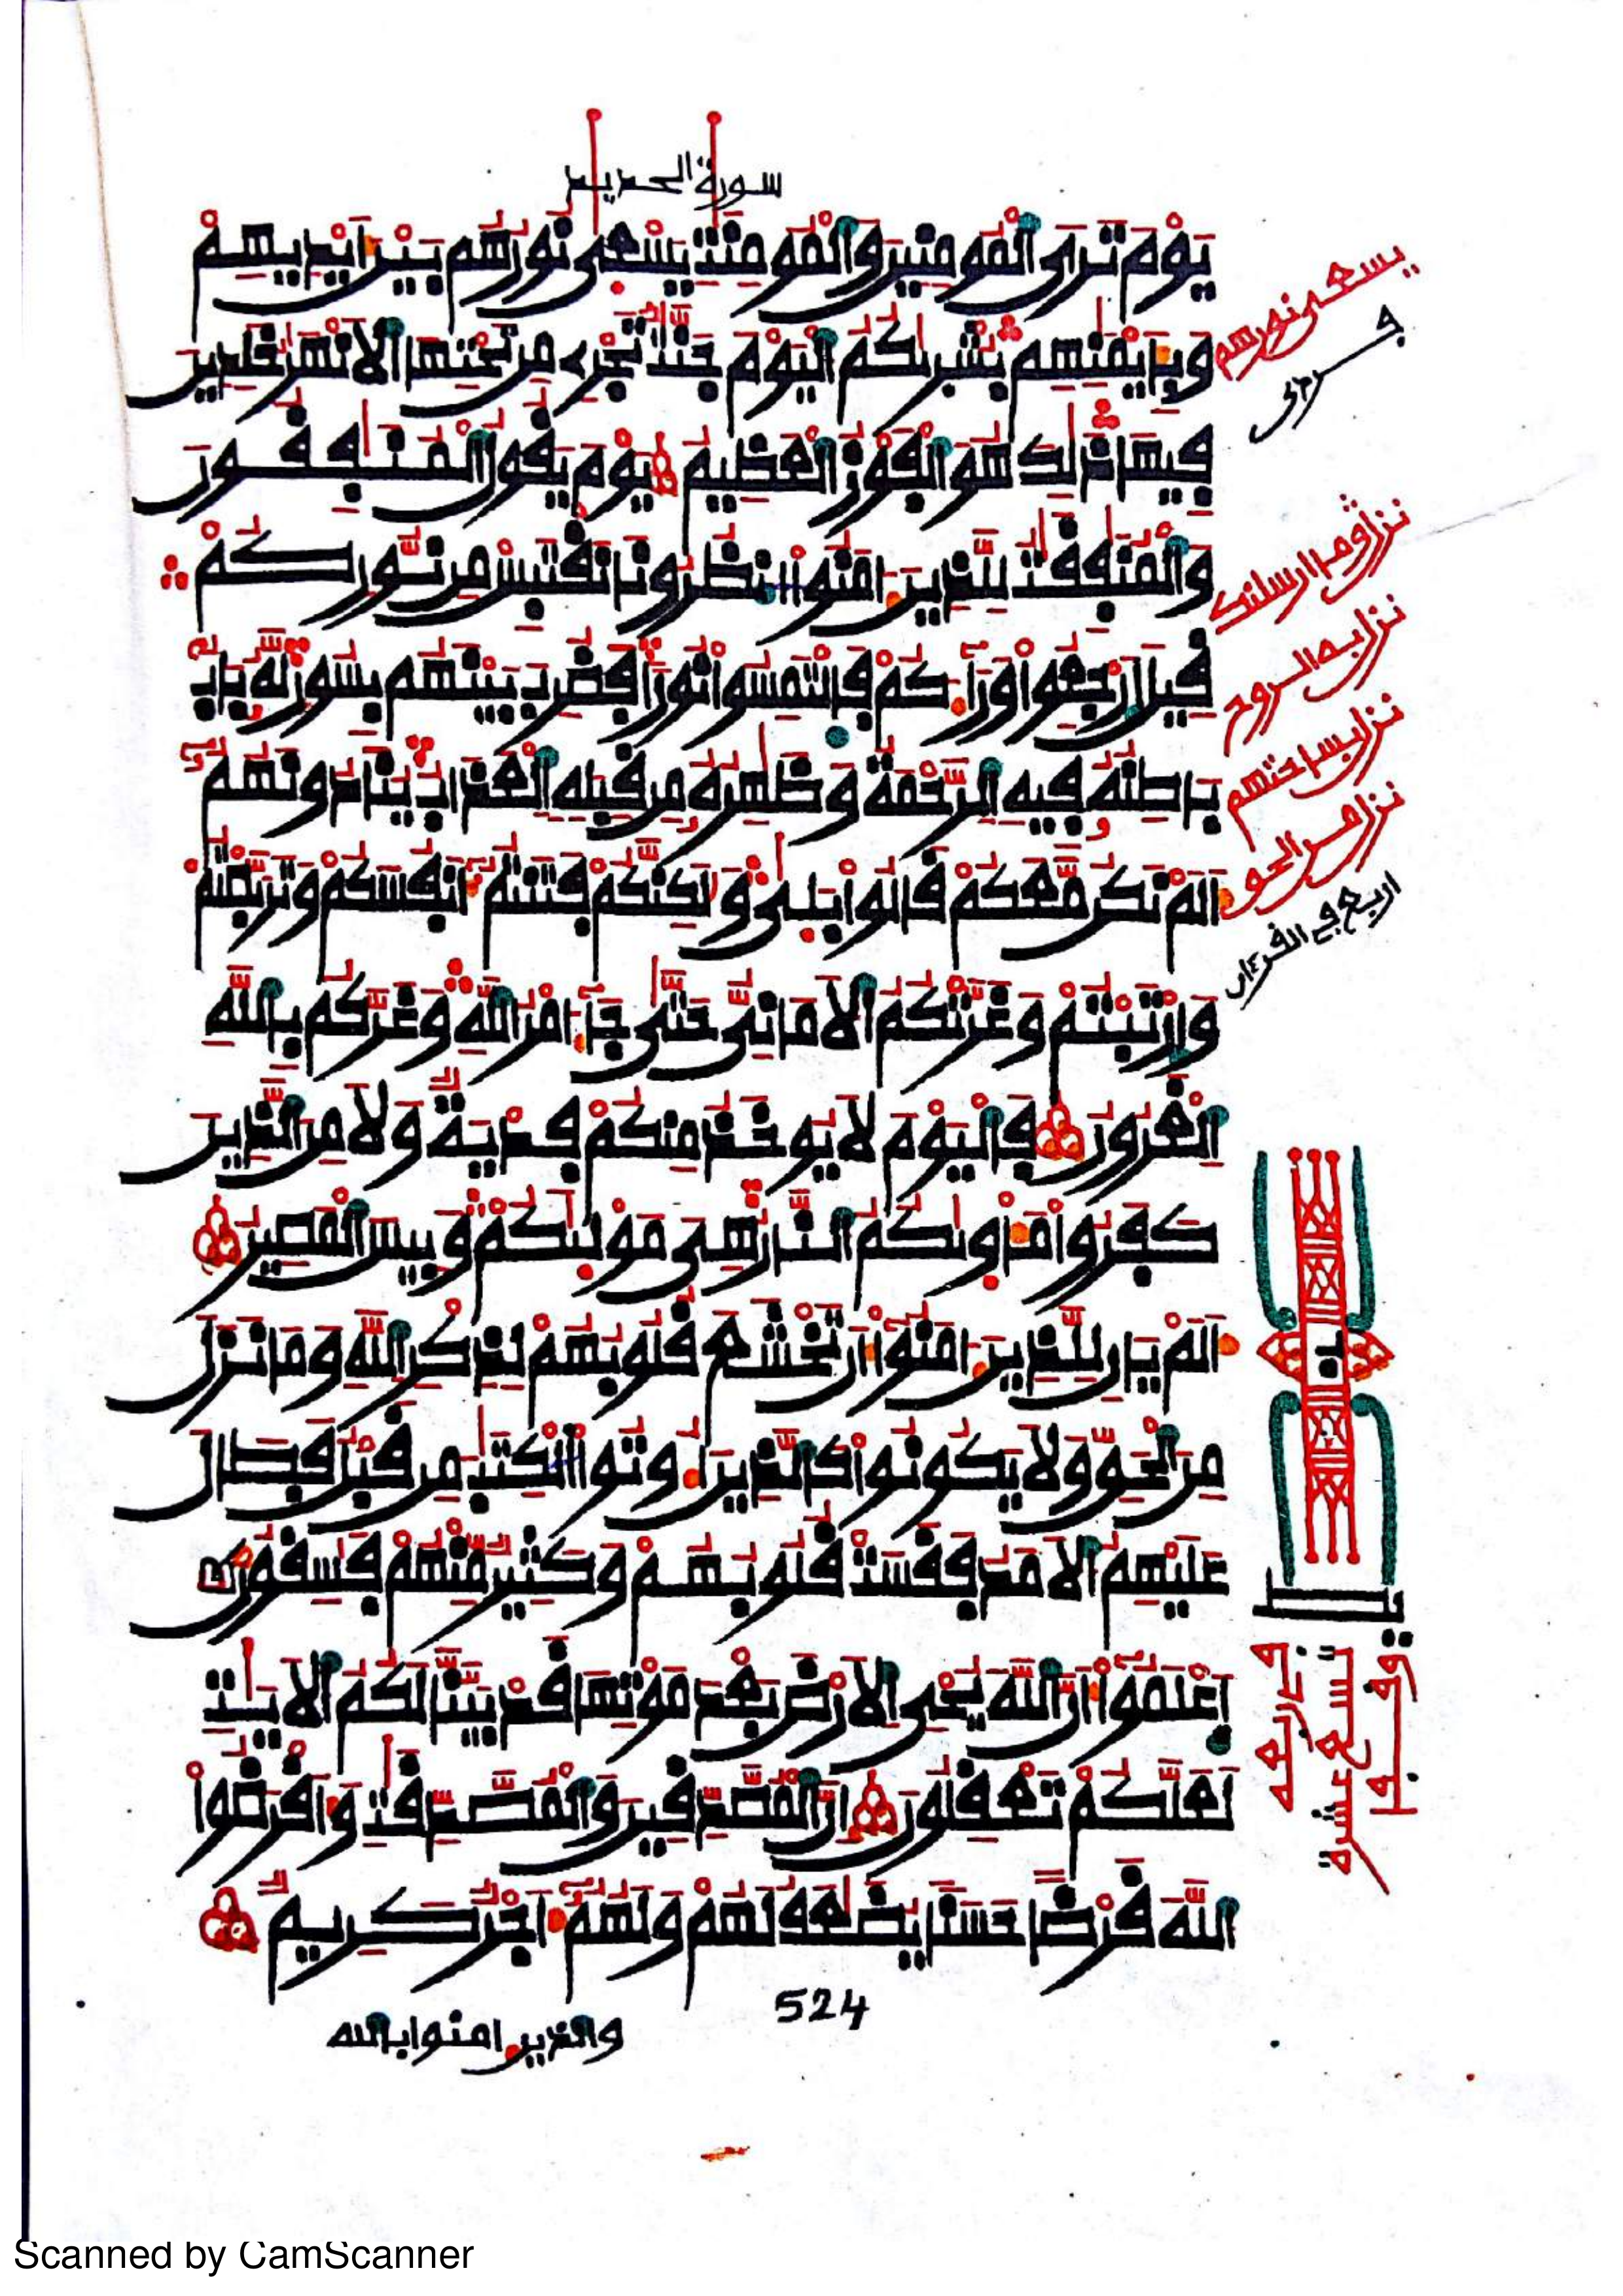 سورة الحديد
يَوْمَ تَرَى الْمُومِنِينَ وَالْمُومِنَٰتِ يَسْعَىٰ نُورُهُم بَيْنَ أَيْدِيهِمْ
وَبِأَيْمَٰنِهِم بُشْرَىٰكُمُ الْيَوْمَ جَنَّٰتٌ تَجْرِے مِن تَحْتِهَا الَانْهَٰرُ خَٰلِدِينَ
فِيهَا ذَٰلِكَ هُوَ الْفَوْزُ الْعَظِيمُ يَوْمَ يَقُولُ الْمُنَٰفِقُونَ
وَالْمُنَٰفِقَٰتُ لِلَّذِينَ ءَامَنُوا انظُرُونَا نَقْتَبِسْ مِن نُّورِكُمْ
قِيلَ ارْجِعُوا وَرَآءَكُمْ فَالْتَمِسُوا نُورًا فَضُرِبَ بَيْنَهُم بِسُورٍ لَّهُ بَابٌ
بَاطِنُهُ فِيهِ الرَّحْمَةُ وَظَٰهِرُهُ مِن قِبَلِهِ الْعَذَابُ يُنَادُونَهُمُ
أَلَمْ نَكُن مَّعَكُمْ قَالُوا بَلَىٰ وَلَٰكِنَّكُمْ فَتَنتُمُ أَنفُسَكُمْ وَتَرَبَّصْتُمْ
وَارْتَبْتُمْ وَغَرَّتْكُمُ الَامَانِيُّ حَتَّىٰ جَآءَ امْرُ اللَّهِ وَغَرَّكُم بِاللَّهِ
الْغَرُورُ فَالْيَوْمَ لَا يُوخَذُ مِنكُمْ فِدْيَةٌ وَلَا مِنَ الَّذِينَ
كَفَرُوا مَأْوَىٰكُمُ النَّارُ هِيَ مَوْلَىٰكُمْ وَبِيسَ الْمَصِيرُ
أَلَمْ يَانِ لِلَّذِينَ ءَامَنُوا أَن تَخْشَعَ قُلُوبُهُمْ لِذِكْرِ اللَّهِ وَمَا نَزَلَ
مِنَ الْحَقِّ وَلَا يَكُونُوا كَالَّذِينَ أُوتُوا الْكِتَٰبَ مِن قَبْلُ فَطَالَ
عَلَيْهِمُ الَامَدُ فَقَسَتْ قُلُوبُهُمْ وَكَثِيرٌ مِّنْهُمْ فَٰسِقُونَ
اعْلَمُوا أَنَّ اللَّهَ يُحْيِ الَارْضَ بَعْدَ مَوْتِهَا قَدْ بَيَّنَّا لَكُمُ الَايَٰتِ
لَعَلَّكُمْ تَعْقِلُونَ إِنَّ الْمُصَّدِّقِينَ وَالْمُصَّدِّقَٰتِ وَأَقْرَضُوا
اللَّهَ قَرْضًا حَسَنًا يُضَٰعَفُ لَهُمْ وَلَهُمُ أَجْرٌ كَرِيمٌ
524
والذين ءامنوا بالله
يسعى نورهم
نزل وما ارسلنك
نزل به الروح
نزل بساحتهم
نزل من الحق
اربع في القرءان
Scanned by CamScanner